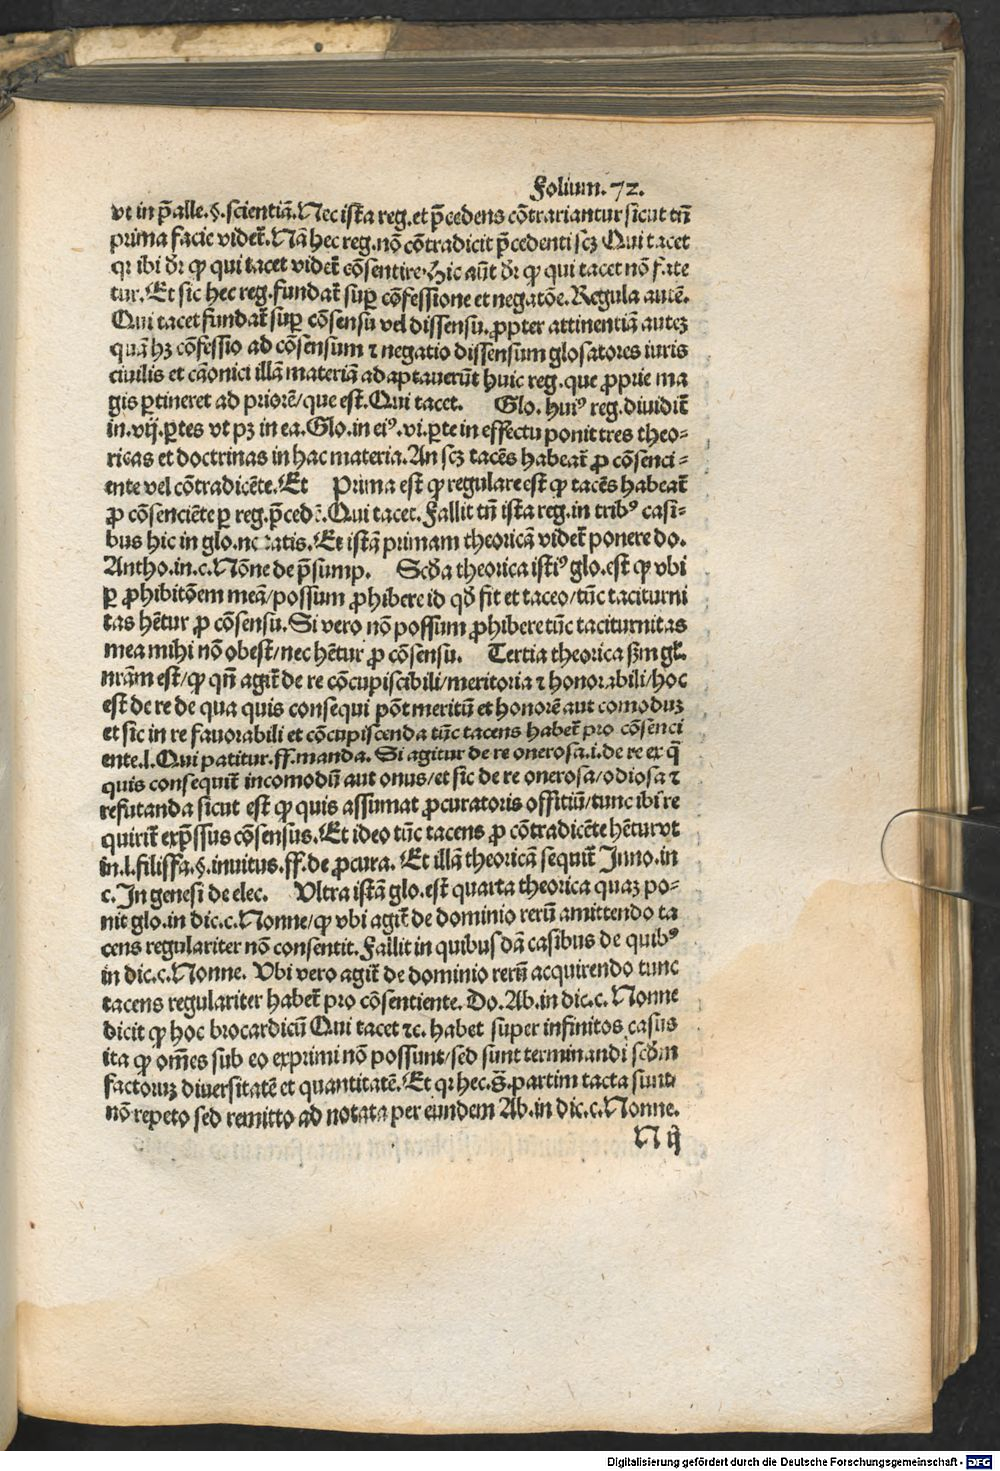 Folium. 72.
vt in p̄alle. §. scientiā. Nec ista reg. et p̄cedens cōtrariantur sicut tn̄
prima facie videt̄. Nā hec reg. nō cōtradicit p̄cedenti scꝫ Qui tacet
qꝛ ibi dr̄ ꝙ qui tacet videt̄ cōsentire. Hic aūt dr̄ ꝙ qui tacet nō fate
tur. Et sic hec reg. fundat̄ suꝑ cōfessione et negatōe. Regula autē.
Qui tacet fundat̄ suꝑ cōsensu vel dissensu. ꝓpter attinentiā auteꝫ
quā hꝫ cōfessio ad cōsensum ⁊ negatio dissensum glosatores iuris
ciuilis et cāonici illā materiā adaptauerūt huic reg. que ꝓprie ma
gis ꝑtineret ad priorē/que est. Qui tacet. Glo. huiꝰ reg. diuidit̄
in. vij. ꝑtes vt pꝫ in ea. Glo. in eiꝰ. vi. ꝑte in effectu ponit tres theo-
ricas et doctrinas in hac materia. An scꝫ tacēs habeat̄ ꝓ cōsenci-
ente vel cōtradicēte. Et Prima est ꝙ regulare est ꝙ tacēs habeat̄
ꝓ cōsenciēte ꝑ reg. p̄ced. Qui tacet. Fallit tn̄ ista reg. in tribꝰ casi-
bus hic in glo. Et istā primam theoricā videt̄ ponere do.
Antho. in. c. Nōne de p̄sump. Scd̄a theorica istiꝰ glo. est ꝙ vbi
ꝑ ꝓhibitōem meā/possum ꝓhibere id qd̄ fit et taceo/tūc taciturni
tas hētur ꝓ cōsensu. Si vero nō possum ꝓhibere tūc taciturnitas
mea mihi nō obest/nec hētur ꝓ cōsensu. Tertia theorica ẜm gl.
nrām est/ꝙ qn̄ agit̄ de re cōcupiscibili/meritoria ⁊ honorabili/hoc
est de re de qua quis consequi pōt meritū et honorē aut comoduꝫ
et sic in re fauorabili et cōcupiscenda tūc tacens habet̄ pro cōsenci
ente. l. Qui patitur. ff. manda. Si agitur de re onerosa. i. de re ex q̄
quis consequit̄ incomodū aut onus/et sic de re onerosa/odiosa ⁊
refutanda sicut est ꝙ quis assumat ꝓcuratoris offitiū/tunc ibi re
quirit̄ exp̄ssus cōsensus. Et ideo tūc tacens ꝓ cōtradicēte hētur vt
in. l. filiffa. §. inuitus. ff. de ꝓcura. Et illā theoricā sequit̄ Inno. in
c. In genesi de elec. Vltra istā glo. est quarta theorica quaꝫ po-
nit glo. in dic. c. Nonne/ꝙ vbi agit̄ de dominio rerū amittendo ta
cens regulariter nō consentit. Fallit in quibusdā casibus de quibꝰ
in dic. c. Nonne. Vbi vero agit̄ de dominio rerū acquirendo tunc
tacens regulariter habet̄ pro cōsentiente. Do. Ab. in dic. c. Nonne
dicit ꝙ hoc brocardicū Qui tacet ⁊c. habet super infinitos casus
ita ꝙ om̄es sub eo exprimi nō possunt/sed sunt terminandi scd̄m
factoruꝫ diuersitatē et quantitatē. Et qꝛ hec. §. partim tacta sunt
nō repeto sed remitto ad notata per eundem Ab. in dic. c. Nonne.
N ij
Digitalisierung gefördert durch die Deutsche Forschungsgemeinschaft - DFG